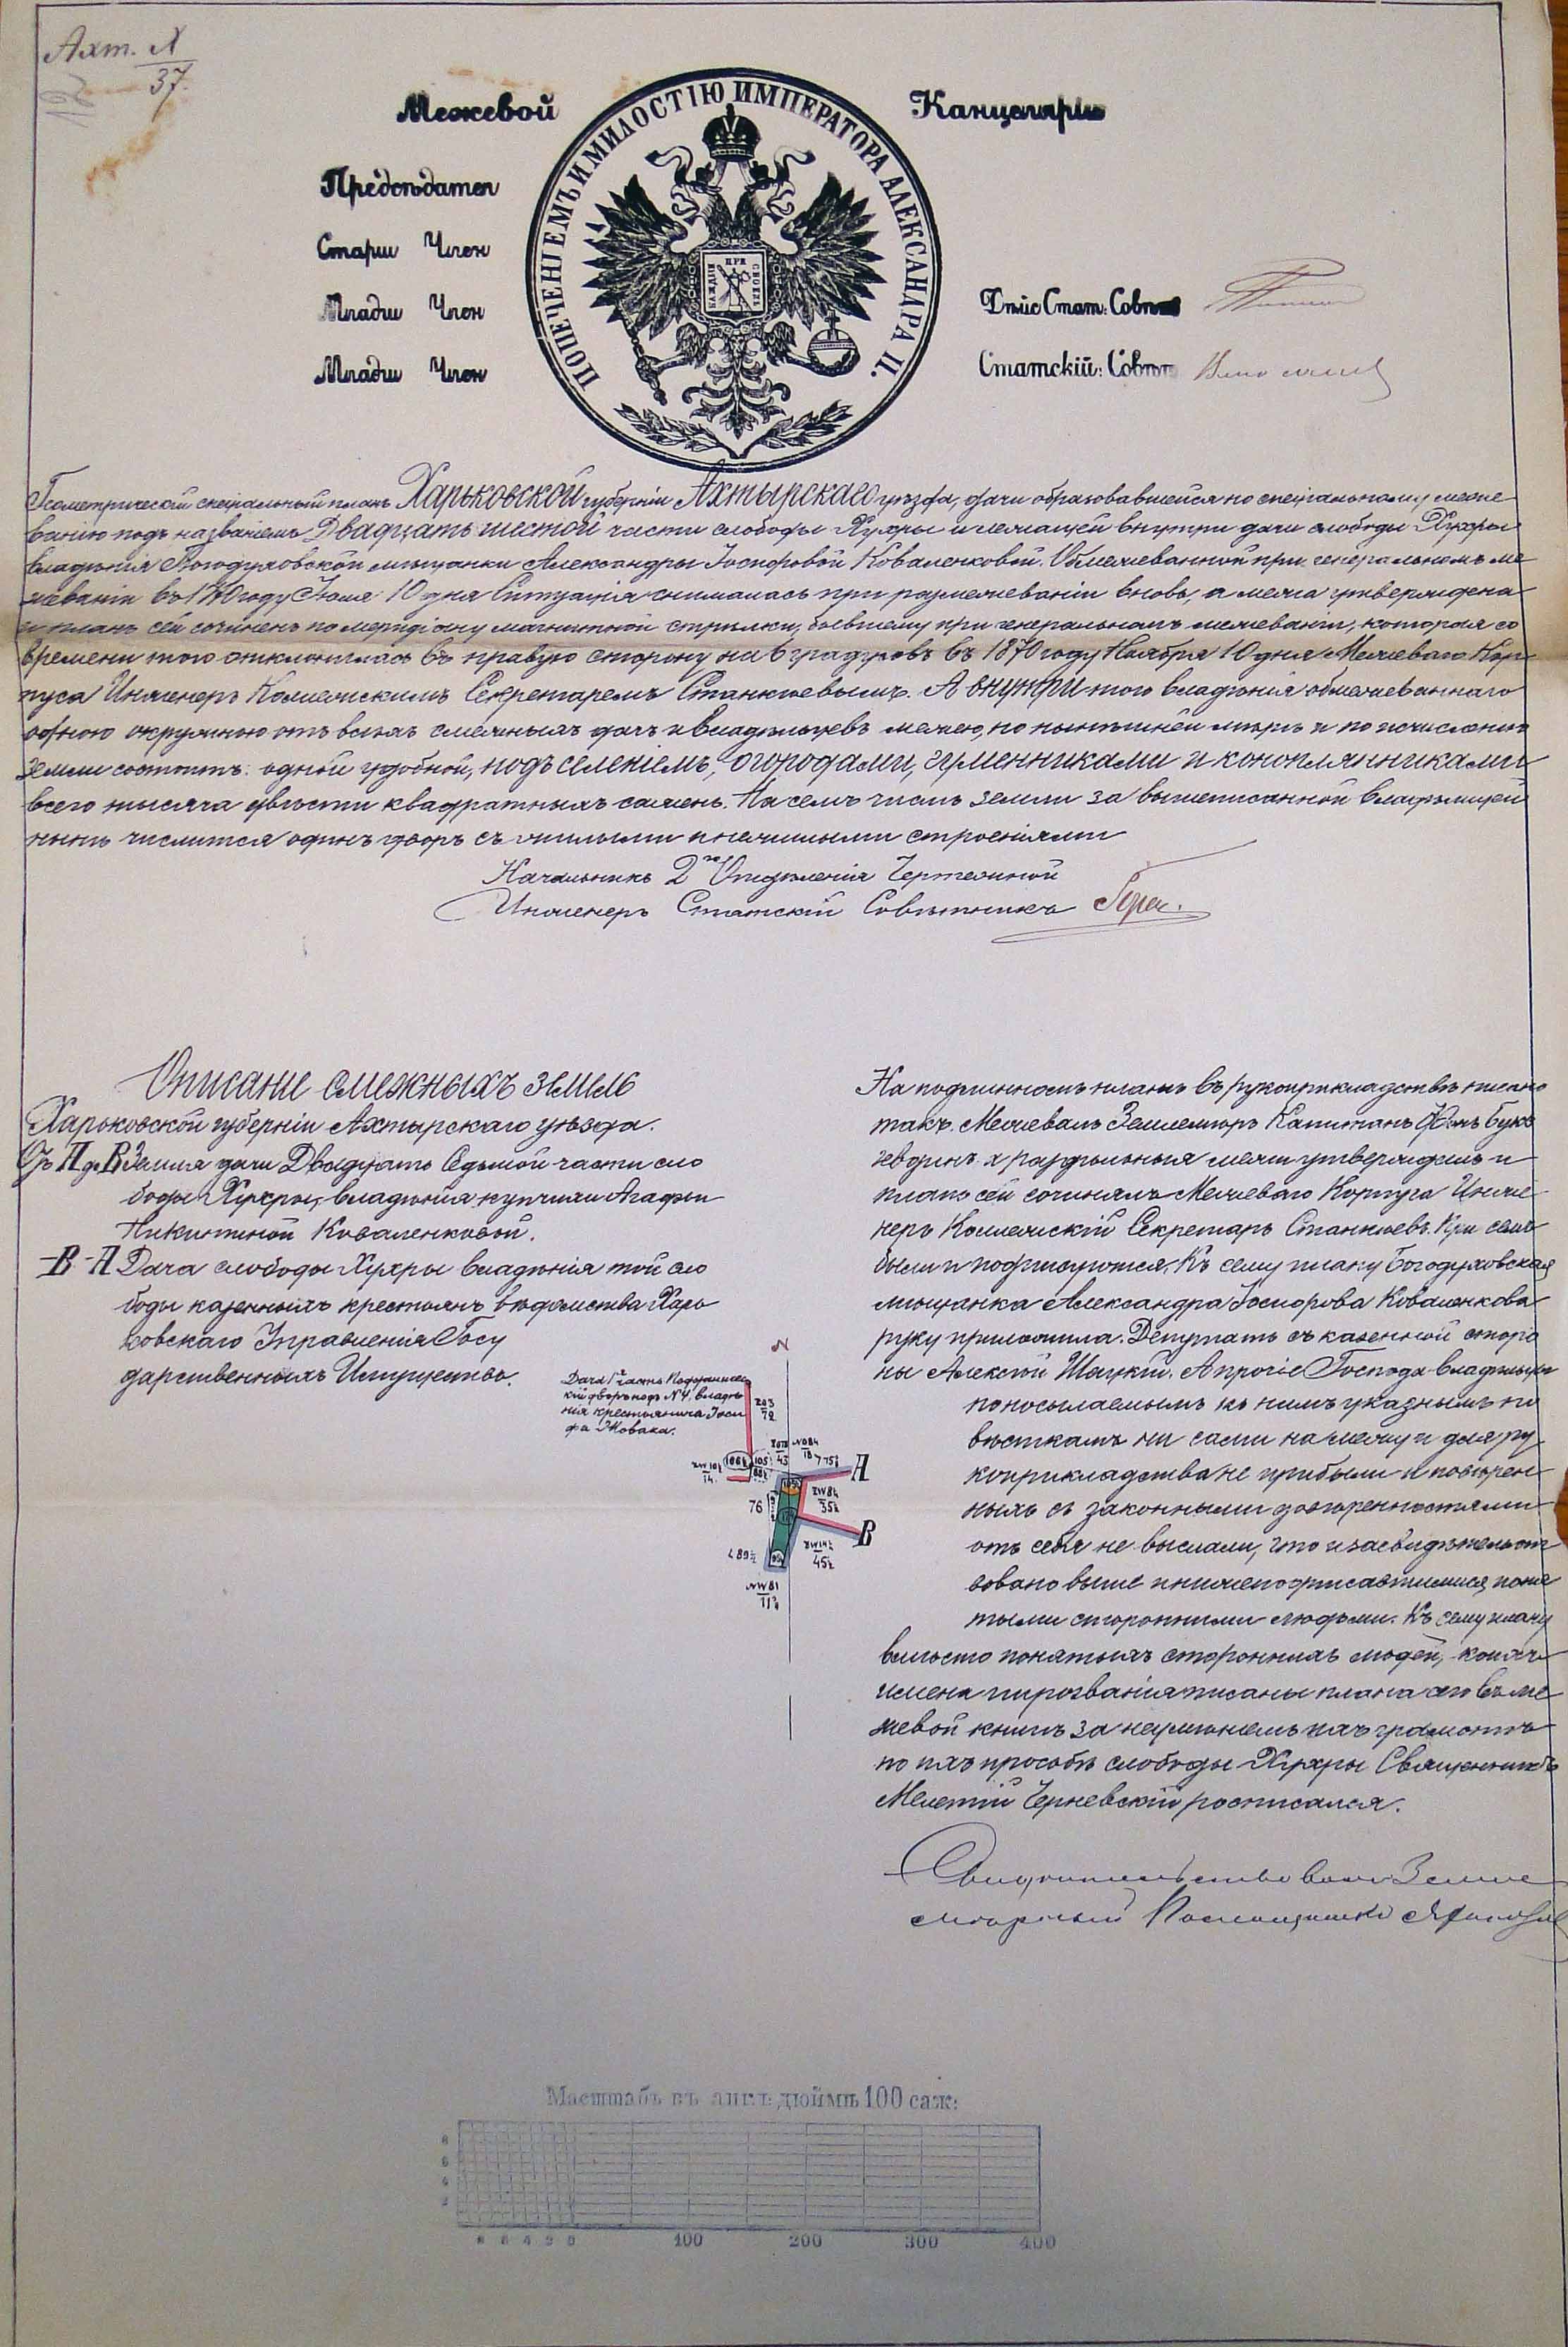 Ахт. Х
37.
Межевой Канцеляріи
ПОПЕЧЕНІЕМЪ И МИЛОСТІЮ ИМПЕРАТОРА АЛЕКСАНДРА II.
Предсѣдател
Старш Член
Младш Член
Дѣйс Стат: Совѣт
Младш Член
Статскій: Совѣт
Геометрическій спеціальный планъ Харьковской губерніи Ахтырскаго уѣзда, дачи образовавшейся по спеціальному меже
ванію подъ названіемъ Двадцать шестой части слободы Хухры и лежащей внутри дачи слободы Хухры
владѣнія Богодуховской мѣщанки Александры Іосифовой Коваленковой. Обмежеванной при генеральномъ ме
жеваніи въ году Іюля 10 дня Ситуація снималась при размежеваніи вновь, а межа утверждена
и планъ сей сочиненъ по меридіану магнитной стрѣлки, бывшему при генеральномъ межеваніи, которая со
времени того отклонилась въ правую сторону на 6 градусовъ въ 1870 году Ноября 10 дня Межеваго Кор
пуса Инженеръ Коллежскимъ Секретаремъ Станкѣевымъ. А внутри того владѣнія обмежеваннаго
одною окружною отъ всѣхъ смежныхъ дачъ и владѣльцевъ межею, по нынѣшней мѣрѣ и по исчисленію
земли состоитъ: одной удобной, подъ селеніемъ, огородами, гуменниками и коноплянниками
всего тысяча двѣсти квадратныхъ сажень. На семъ числѣ земли за вышеписанной владѣлицей
нынѣ числится одинъ дворъ съ жилыми и нежилыми строеніями
Начальникъ 2го Отдѣленія Чертежной
Инженеръ Статскій Совѣтникъ
Описаніе смежныхъ земель
Харьковской губерніи Ахтырскаго уѣзда.
Отъ А до В Земля дачи Двадцать Седьмой части сло
боды Хухры, владѣнія купчихи Агафьи
Никитиной Коваленковой.
В А Дача слободы Хухры владѣнія той сло
боды казенныхъ крестьянъ вѣдомства Харь
ковскаго Управленія Госу
дарственныхъ Имуществъ.
кій дворъ подъ №4, владѣ
нія крестьянина Іоси
фа Новака.
N
А
В
76
На подлинномъ планѣ въ рукоприкладствѣ писано
такъ. Межевалъ Землемѣръ Капитанъ Фонъ Букс
гевдинъ. А раздѣльныя межи утверждалъ и
планъ сей сочинялъ Межеваго Корпуса Инже
неръ Коллежскій Секретарь Станкѣевъ. При семъ
были и подписуются. Къ сему плану Богодуховская
мѣщанка Александра Іосифова Коваленкова
руку приложила. Депутатъ съ казенной сторо
ны Алексѣй Шацкій. А прочіе Господа владѣльцы
по посылаемымъ къ нимъ указнымъ по
вѣсткамъ ни сами на межу и для ру
коприкладства не прибыли и повѣрен
ныхъ съ законными довѣренностями
отъ себя не выслали, что и засвидѣтельст
вовано выше и нижеподписавшимися поня
тыми сторонними людьми. Къ сему плану
вмѣсто понятыхъ стороннихъ людей, коихъ
имена и прозванія писаны плана сего въ ме
жевой книгѣ за неумѣніемъ ихъ грамотѣ
по ихъ просьбѣ слободы Хухры Священникъ
Мелетій Черневскій росписался.
Свидѣтельствовалъ Земле
мѣрный Помощникъ
Масштабъ въ англ: дюймѣ 100 саж:
100 200 300 400